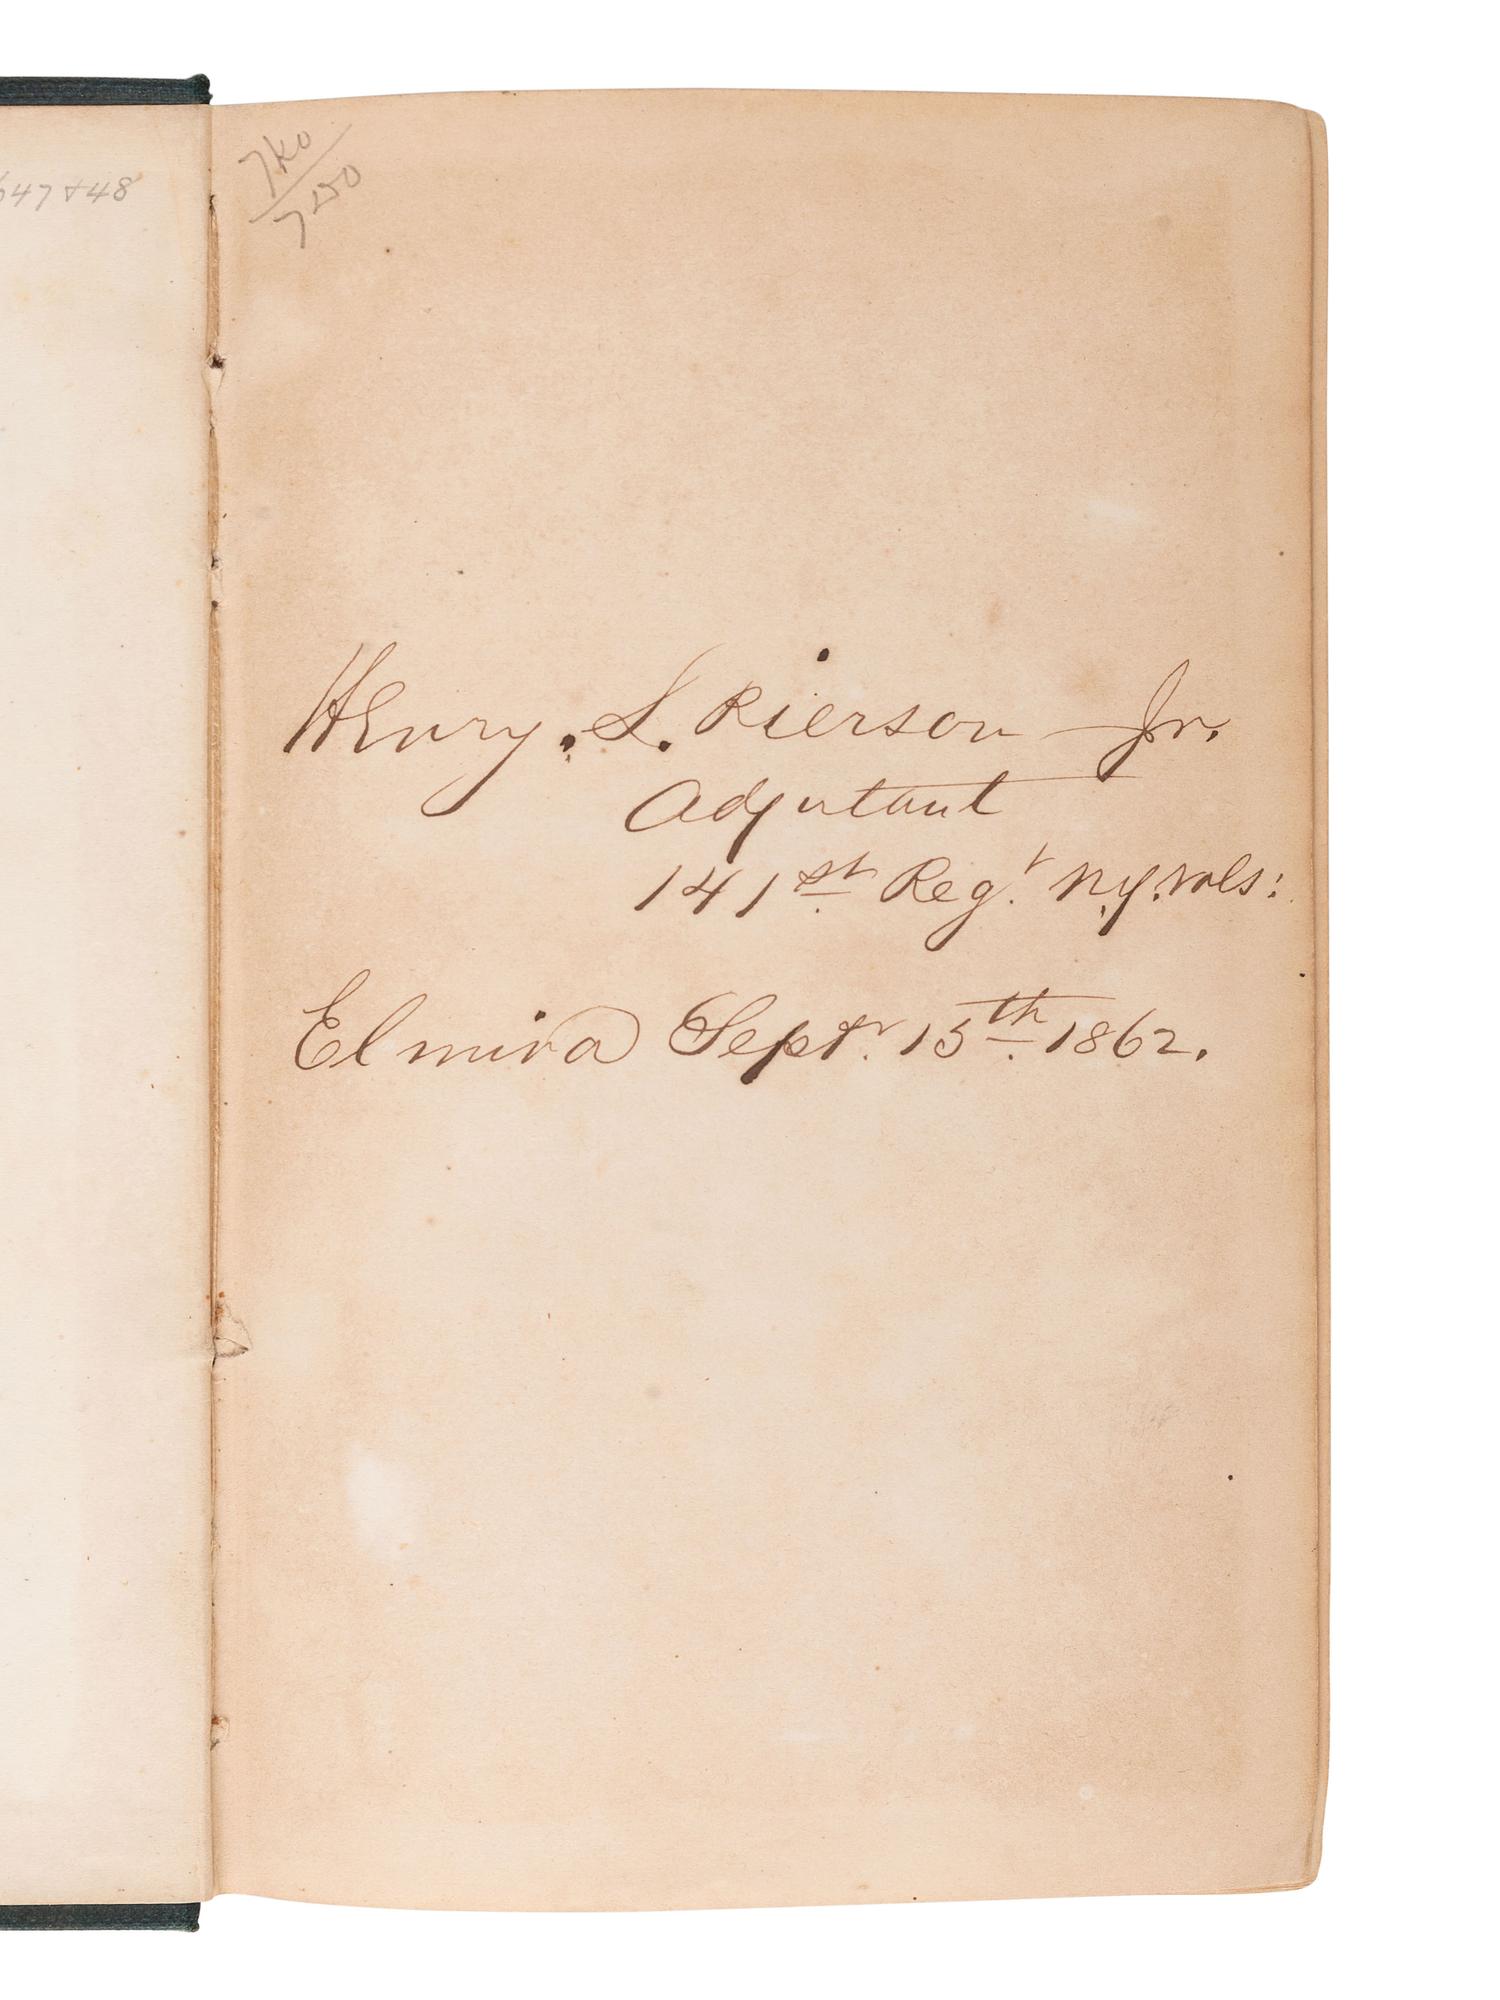 647 & 48
7k0
7 w0
Henry. S. Pierson Jr.
Adjutant
141st Regt. N.Y. Vols:
Elmira Septr. 15th 1862.